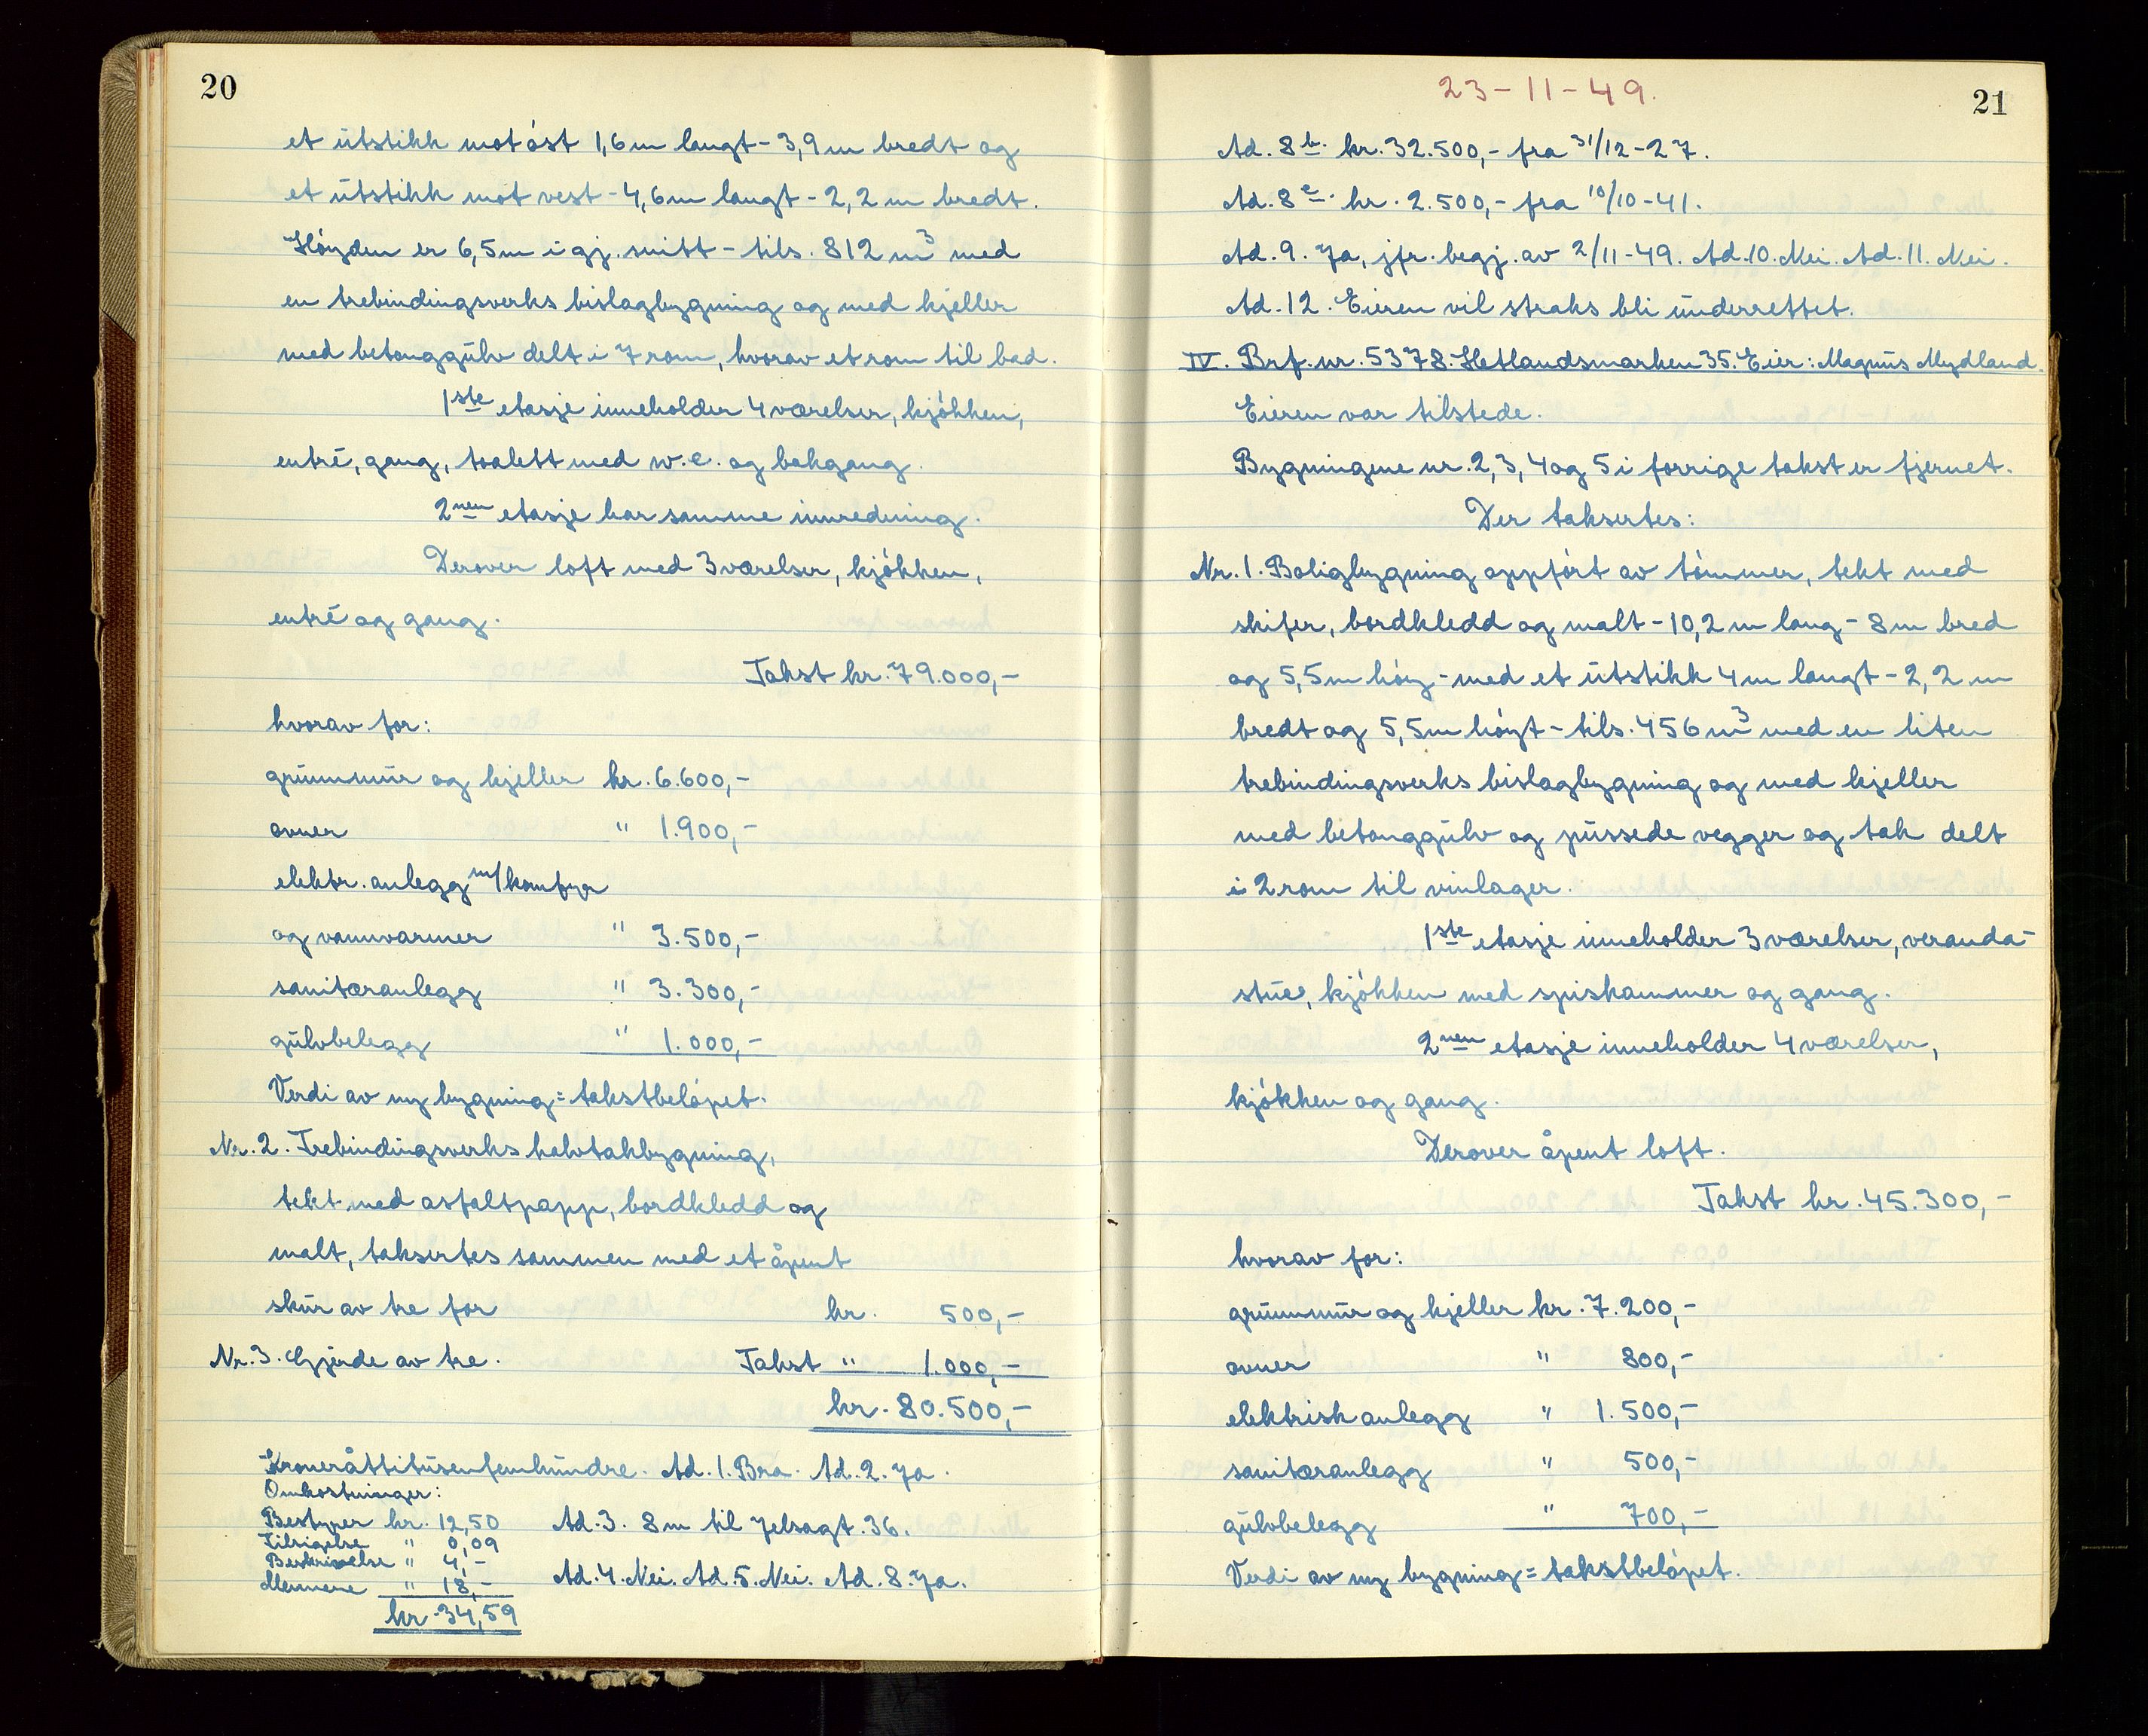 20
et utstikk mot öst 1,6 m langt - 3,9 m bredt og
et utstikk mot vest - 4,6 m langt - 2,2 m bredt.
Höyden er 6,5 m i gj. snitt - tils. 812 m³ med
en trebindingsverks bislagbygning og med kjeller
med betonggulv delt i 7 rom, hvorav et rom til bad.
1ste etasje inneholder 4 værelser, kjökken,
entré, gang, toalett med w.c. og bakgang.
2nen etasje har samme innredning.
Derover loft med 3 værelser, kjökken,
entré og gang.
Takst kr. 79.000,-
hvorav for:
grunnmur og kjeller kr. 6.600,-
ovner " 1.900,-
elektr. anlegg m/komfyr
og vannvarmer " 3.500,-
sanitæranlegg " 3.300,-
gulvbelegg " 1.000,-
Verdi av ny bygning = takstbelöpet.
Nr. 2. Trebindingsverks halvtakbygning,
tekt med asfaltpapp, bordkledd og
malt, taksertes sammen med et åpent
skur av tre for kr. 500,-
Nr. 3. Gjerde av tre. Takst " 1.000,-
kr. 80.500,-
Kroneråttitusenfemhundre. Ad. 1. Bra. Ad. 2. Ja.
Omkostninger:
Bestyrer kr. 12,50 Ad. 3. 8 m til Jelsagt. 36.
Tilsigelse " 0,09
Beskrivelse " 4,-
Mennene " 18,- Ad. 4. Nei. Ad. 5. Nei. Ad. 8. Ja.
kr. 34,59
23-11-49.
21
Ad. 8 b. kr. 32.500,- fra 31/12-27.
Ad. 8 c. kr. 2.500,- fra 10/10-41.
Ad. 9. Ja, jfr. begj. av 2/11-49. Ad. 10. Nei. Ad. 11. Nei.
Ad. 12. Eieren vil straks bli underrettet.
IV. Brf. nr. 5378. Hetlandsmarken 35. Eier: Magnus Mydland.
Eieren var tilstede.
Bygningene nr. 2, 3, 4 og 5 i forrige takst er fjernet.
Der taksertes:
Nr. 1. Boligbygning oppfört av tömmer, tekt med
skifer, bordkledd og malt - 10,2 m lang - 8 m bred
og 5,5 m höy - med et utstikk 4 m langt - 2,2 m
bredt og 5,5 m höyt - tils. 456 m³ med en liten
trebindingsverks bislagbygning og med kjeller
med betonggulv og pussede vegger og tak delt
i 2 rom til vinlager.
1ste etasje inneholder 3 værelser, veranda-
stue, kjökken med spiskammer og gang.
2nen etasje inneholder 4 værelser,
kjökken og gang.
Derover åpent loft.
Takst kr. 45.300,-
hvorav for:
grunnmur og kjeller kr. 7.200,-
ovner " 800,-
elektrisk anlegg " 1.500,-
sanitæranlegg " 500,-
gulvbelegg " 700,-
Verdi av ny bygning = takstbelöpet.